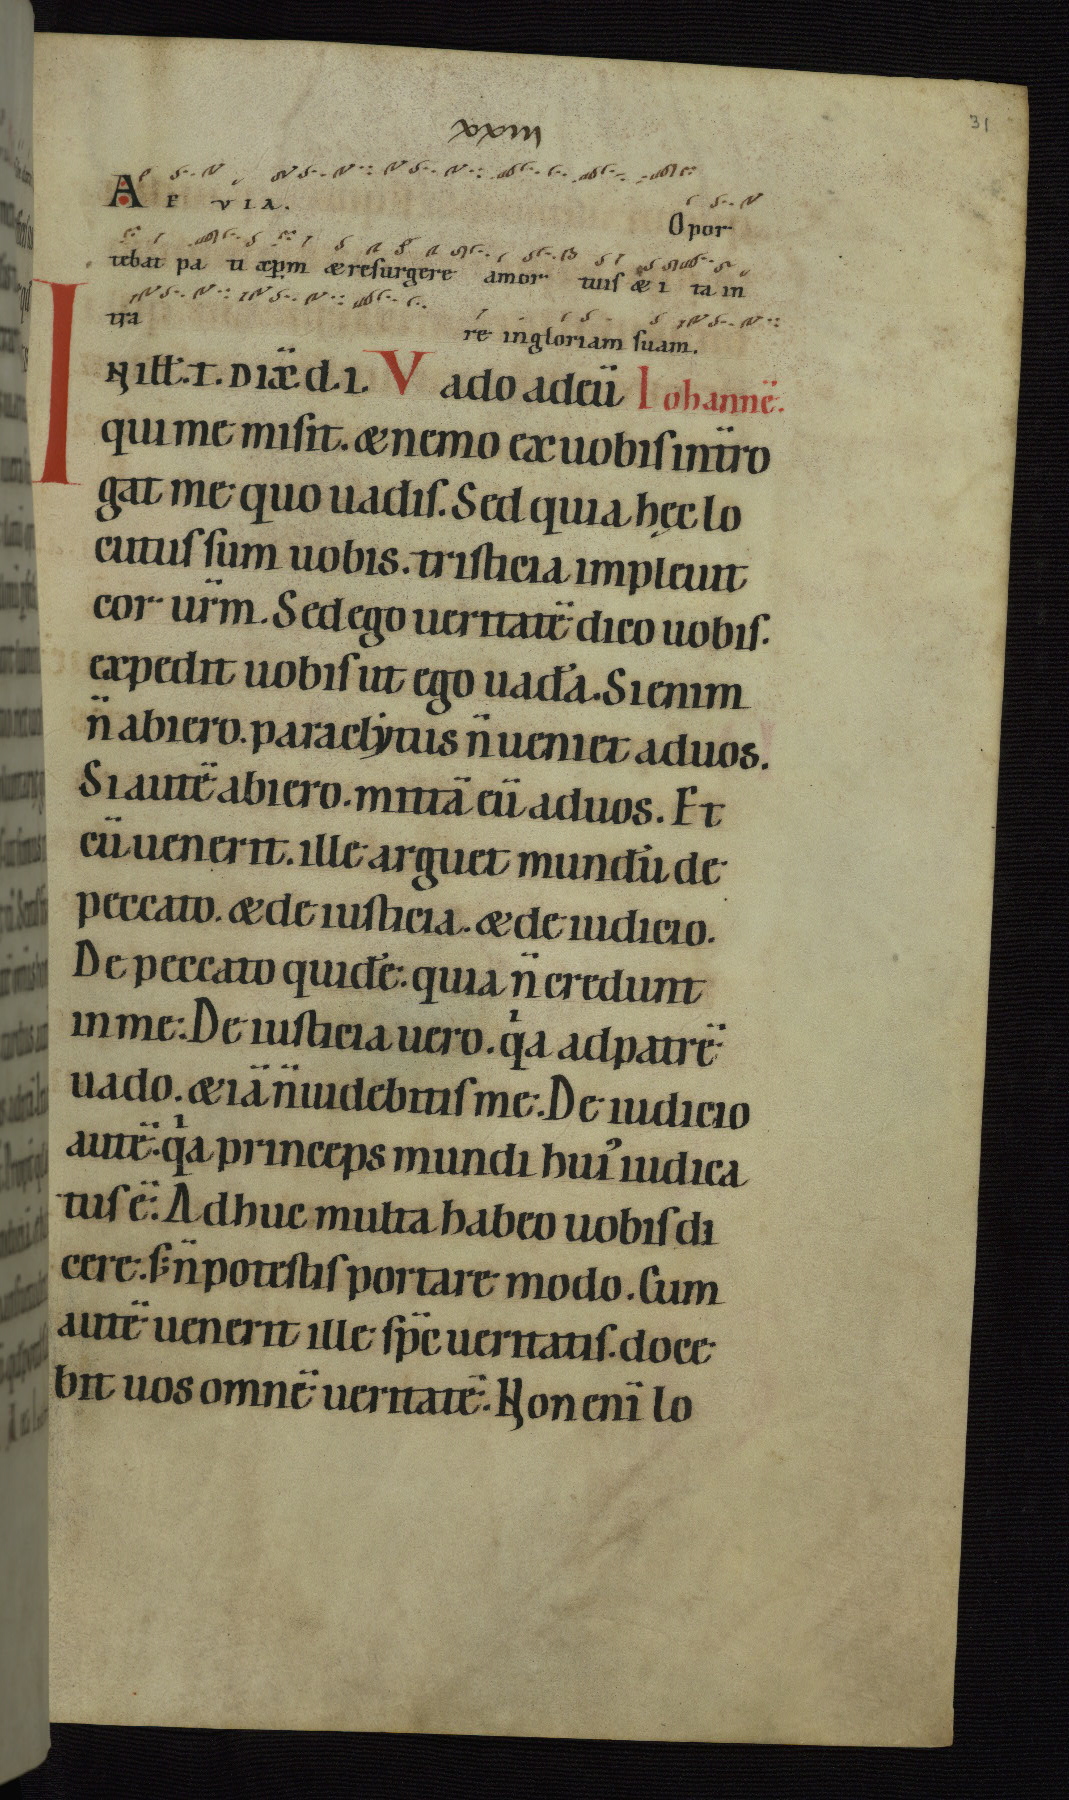 xxxiiii
31
A E VIA.
Opor
tebat pa ti xp̄m & resurgere amor tuis & i ta in
tra
re ingloriam suam.
IN illł. T. DIX̄ d. i. Vado ad eū Iohannē.
qui me misit. & nemo ex uobis int̄ro
gat me quo uadis. Sed quia hęc lo
cutus sum uobis. tristicia impleuit
cor ur̄m. Sed ego ueritatē dico uobis.
expedit uobis ut ego uadā. Si enim
n̄ abiero. paraclẏtus n̄ ueniet ad uos.
Si autē abiero. mittā eū ad uos. Et
cū uenerit. ille arguet mundū de
peccato. & de iusticia. & de iudicio.
De peccato quidē: quia n̄ credunt
in me: De iusticia uero. qͥa ad patrē
uado. & iā n̄ uidebitis me: De iudicio
autē: qͥa princeps mundi hui᾽ iudica
tus ē: Adhuc multa habeo uobis di
cere. s; n̄ potestis portare modo. Cum
autē uenerit ille sp̄c ueritatis. doce
bit uos omnē ueritatē. Non eni̅ lo